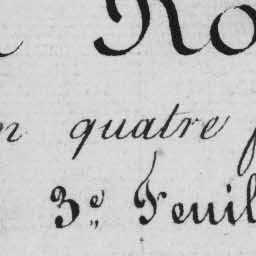 Ro
n quatre
3e Feuil